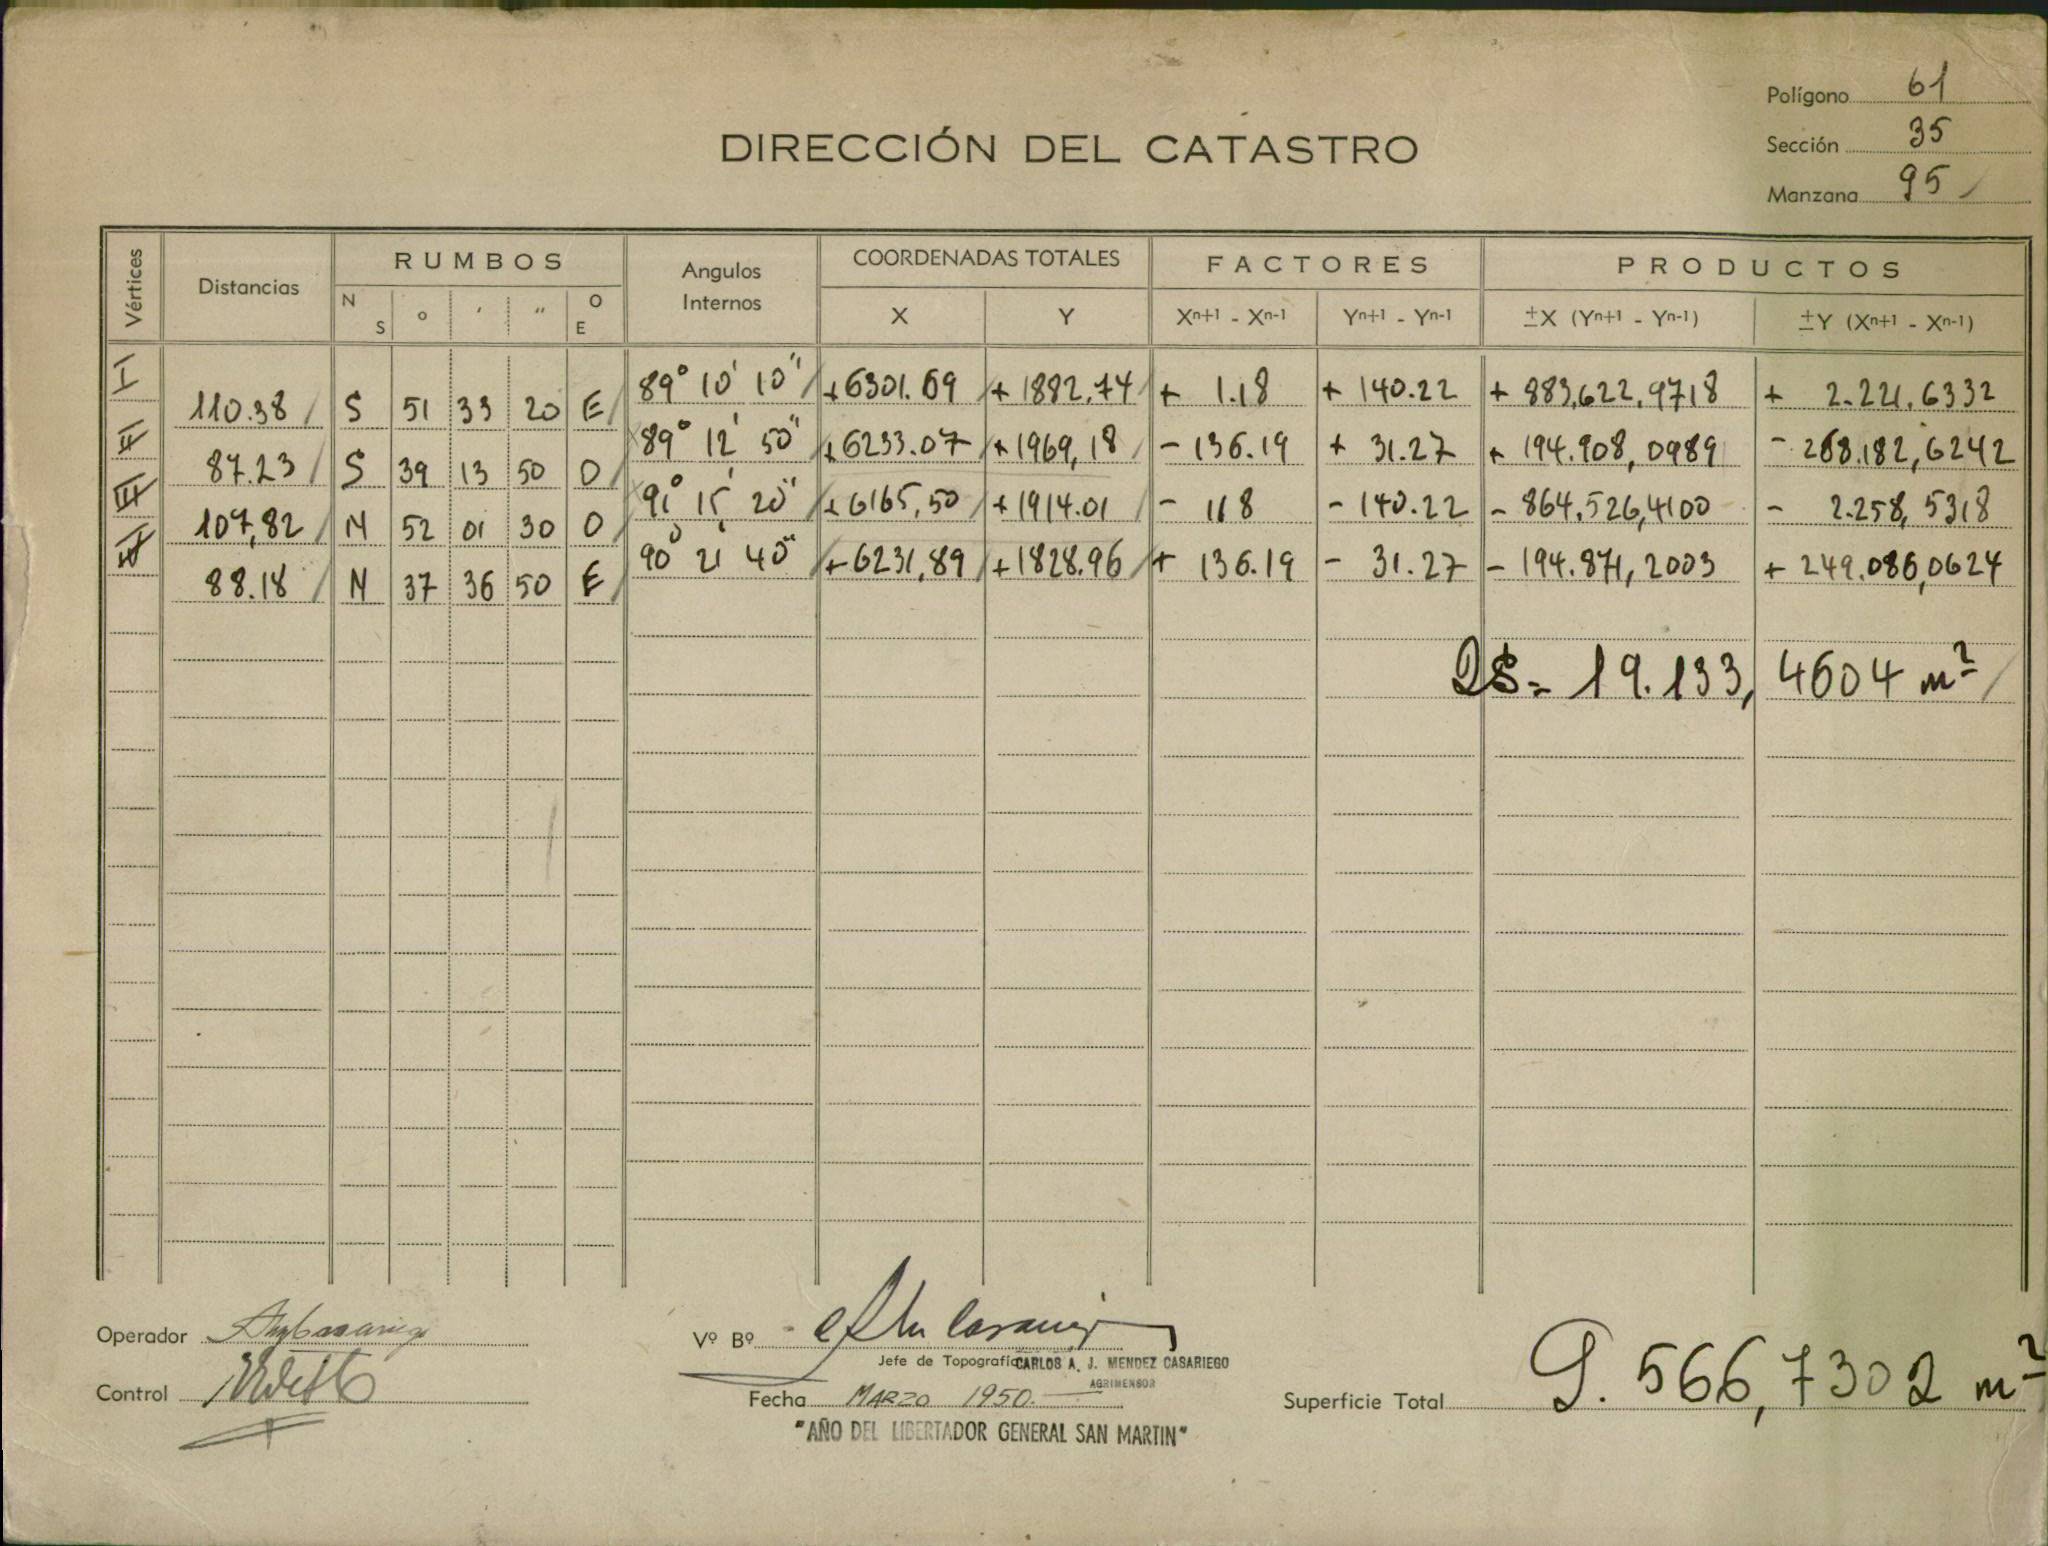 Polígono 61
DIRECCIÓN DEL CATASTRO
Sección 35
Manzana 95
Vértices Distancias RUMBOS Angulos Internos COORDENADAS TOTALES FACTORES PRODUCTOS
N S ° ′ ″ O E X Y Xⁿ⁺¹ - Xⁿ⁻¹ Yⁿ⁺¹ - Yⁿ⁻¹ ±X (Yⁿ⁺¹ - Yⁿ⁻¹) ±Y (Xⁿ⁺¹ - Xⁿ⁻¹)
I 89° 10' 10" +6301.69 + 1882,74 + 1.18 + 140.22 + 883,622,9718 + 2.221,6332
110.38 S 51 33 20 E
II 89° 12' 50" +6233.07 +1969,18 - 136.19 + 31.27 + 194.908,0989 - 268.182,6242
87.23 S 39 13 50 O
III 91° 15' 20" +6165,50 +1914.01 - 118 - 140.22 - 864.526,4100 - 2.258,5318
107,82 N 52 01 30 O
IV 90° 21' 40" +6231,89 +1828.96 + 136.19 - 31.27 - 194.871,2003 + 249.086,0624
88.18 N 37 36 50 E
2S= 19.133,4604 m²
Operador
Vº Bº
Jefe de Topografía CARLOS A. J. MENDEZ CASARIEGO
AGRIMENSOR
Control
Fecha MARZO 1950.
Superficie Total 9.566,7302 m²
"AÑO DEL LIBERTADOR GENERAL SAN MARTIN"